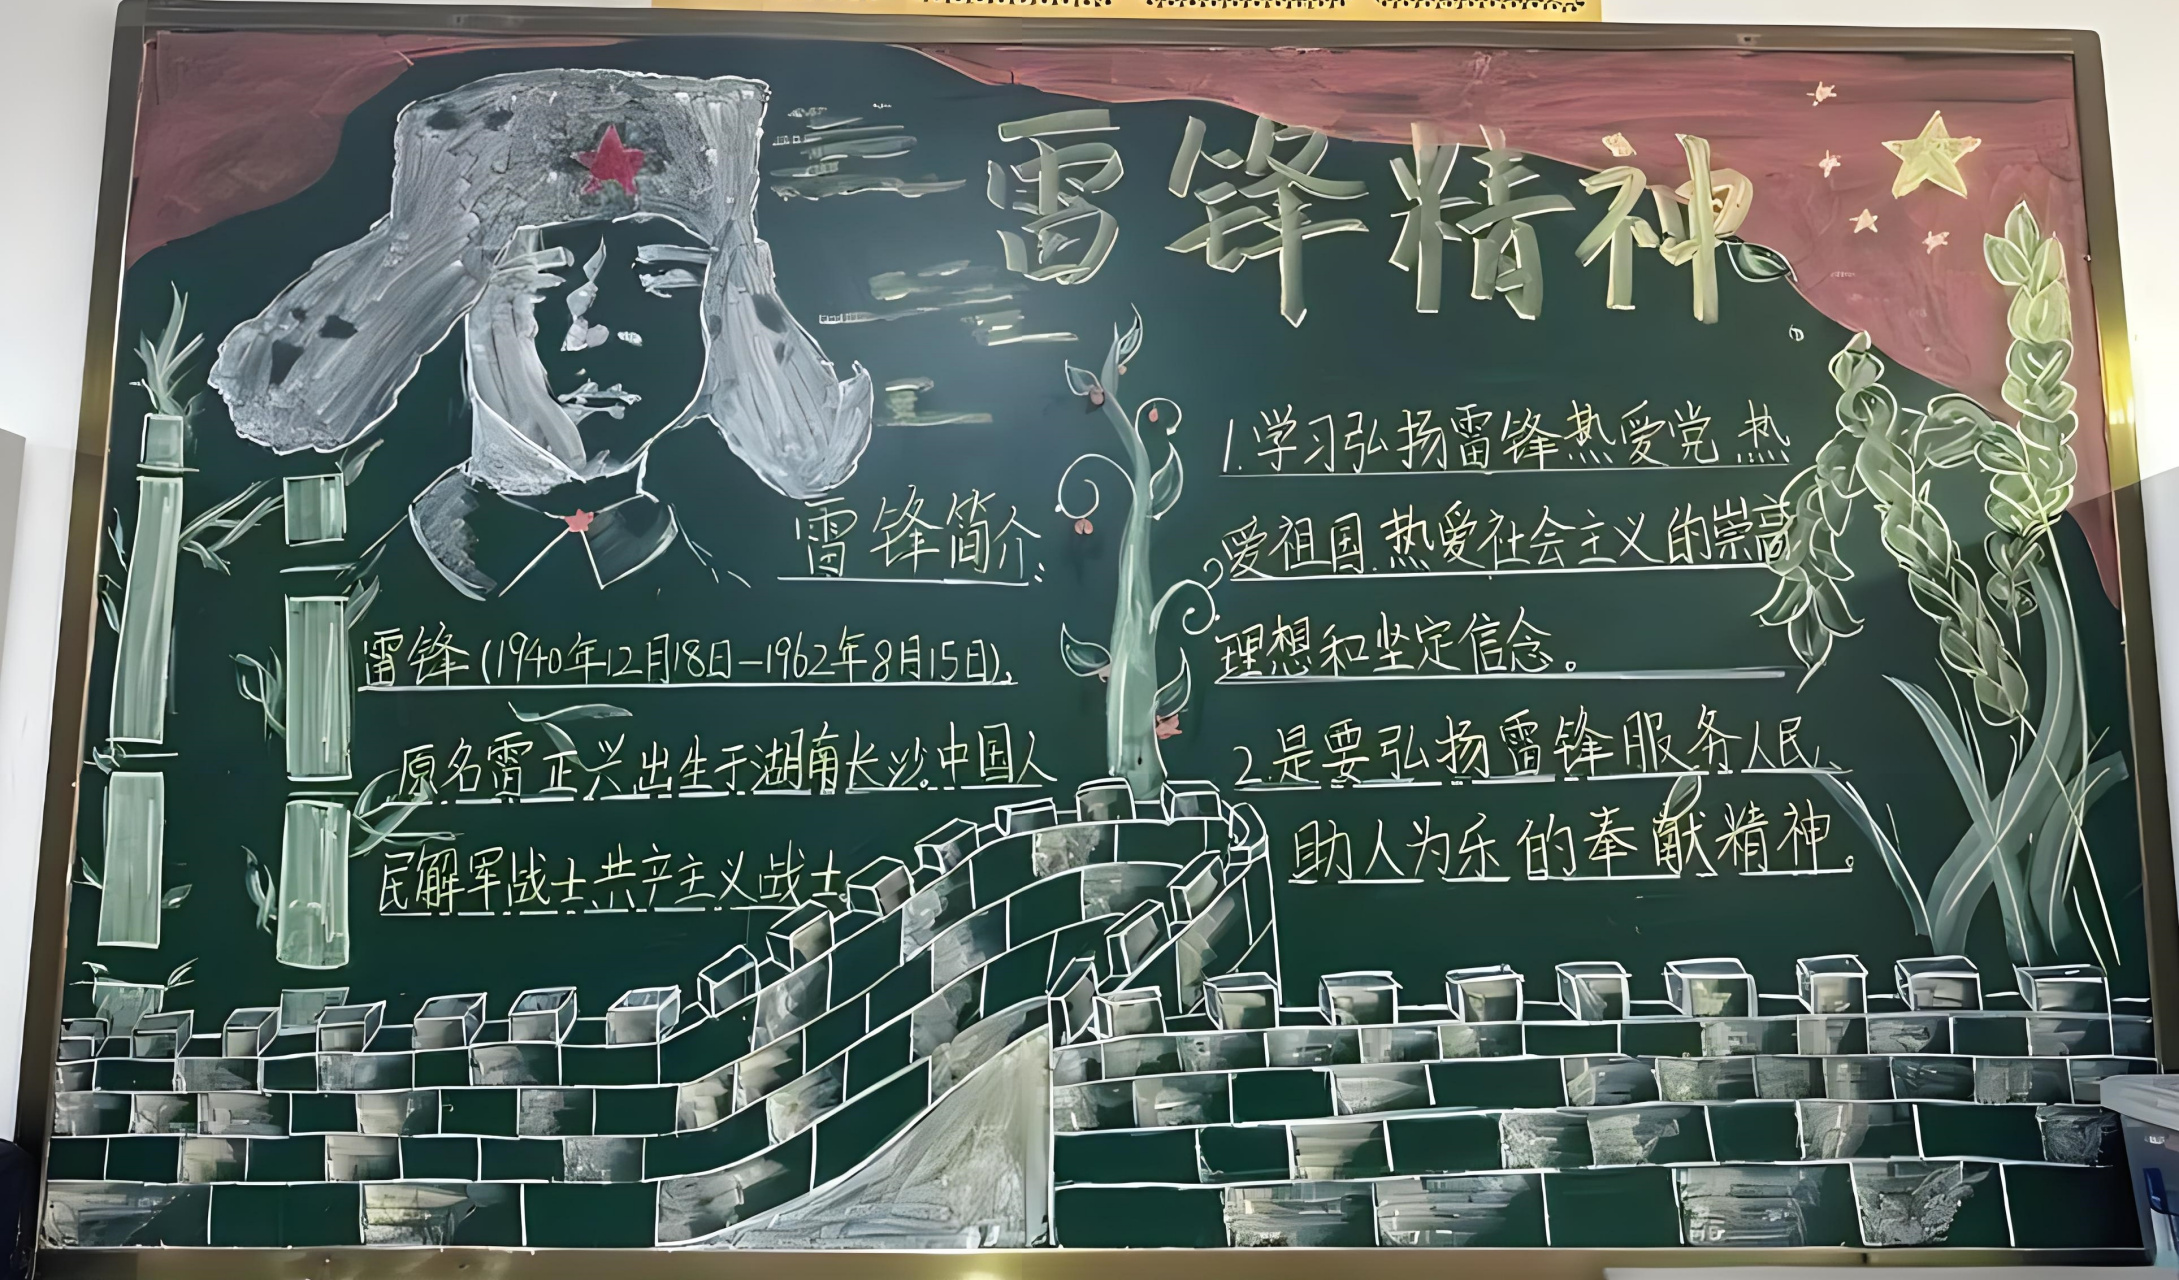 雷锋精神
雷锋简介:
雷锋(1940年12月18日-1962年8月15日),
原名雷正兴出生于湖南长沙。中国人
民解军战士共产主义战士
1.学习弘扬雷锋热爱党.热
爱祖国.热爱社会主义的崇高
理想和坚定信念。
2.是要弘扬雷锋服务人民、
助人为乐的奉献精神。